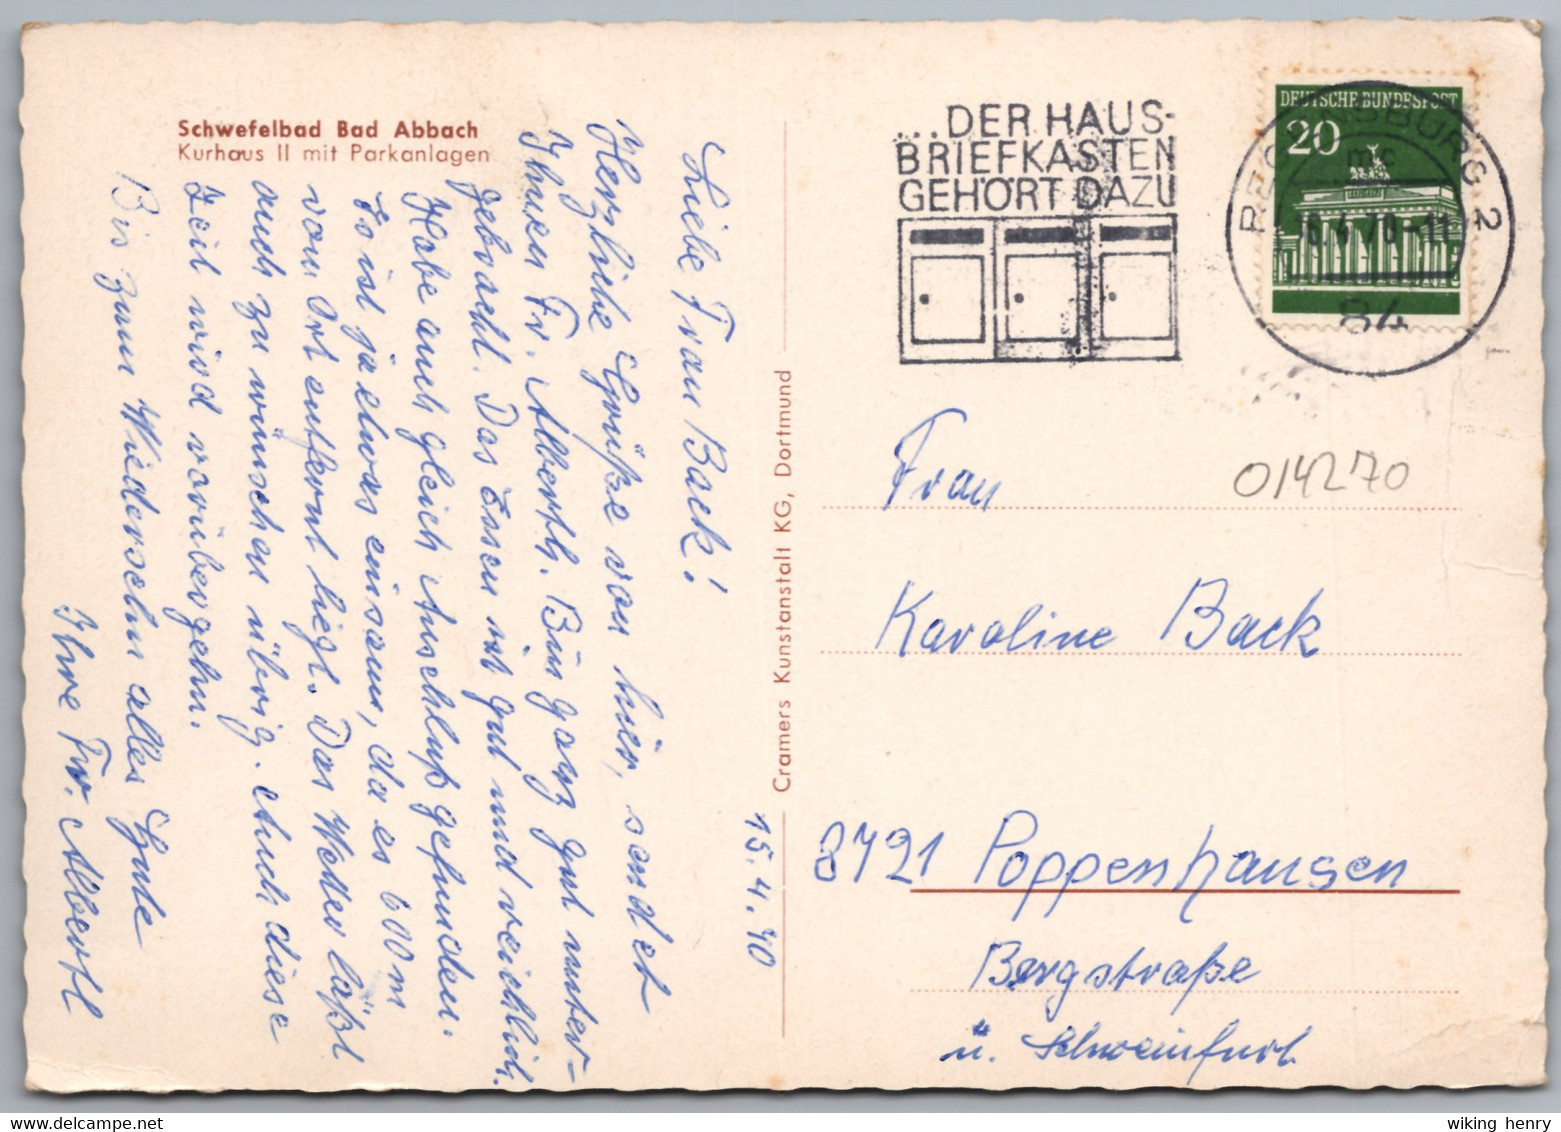 Schwefelbad Bad Abbach
Kurhaus II mit Parkanlagen
15.4.70
Liebe Frau Back!
Herzliche Grüße von hier, sendet
Ihnen Fr. Alberth. Bin ganz gut unter-
gebracht. Das Essen ist gut und reichlich.
Habe auch gleich Anschluß gefunden.
Es ist ja etwas einsam, da es 600 m
vom Ort entfernt liegt. Das Wetter läßt
auch zu wünschen übrig. Auch diese
Zeit wird vorübergehn.
Bis zum Wiedersehn alles Gute
Ihre Fr. Alberth
Cramers Kunstanstalt KG, Dortmund
...DER HAUS-
BRIEFKASTEN
GEHÖRT DAZU
DEUTSCHE BUNDESPOST
20
REGENSBURG 2
mc
16.4.70-11
84
014270
Frau
Karoline Back
8721 Poppenhausen
Bergstraße
ü. Schweinfurt
wiking henry